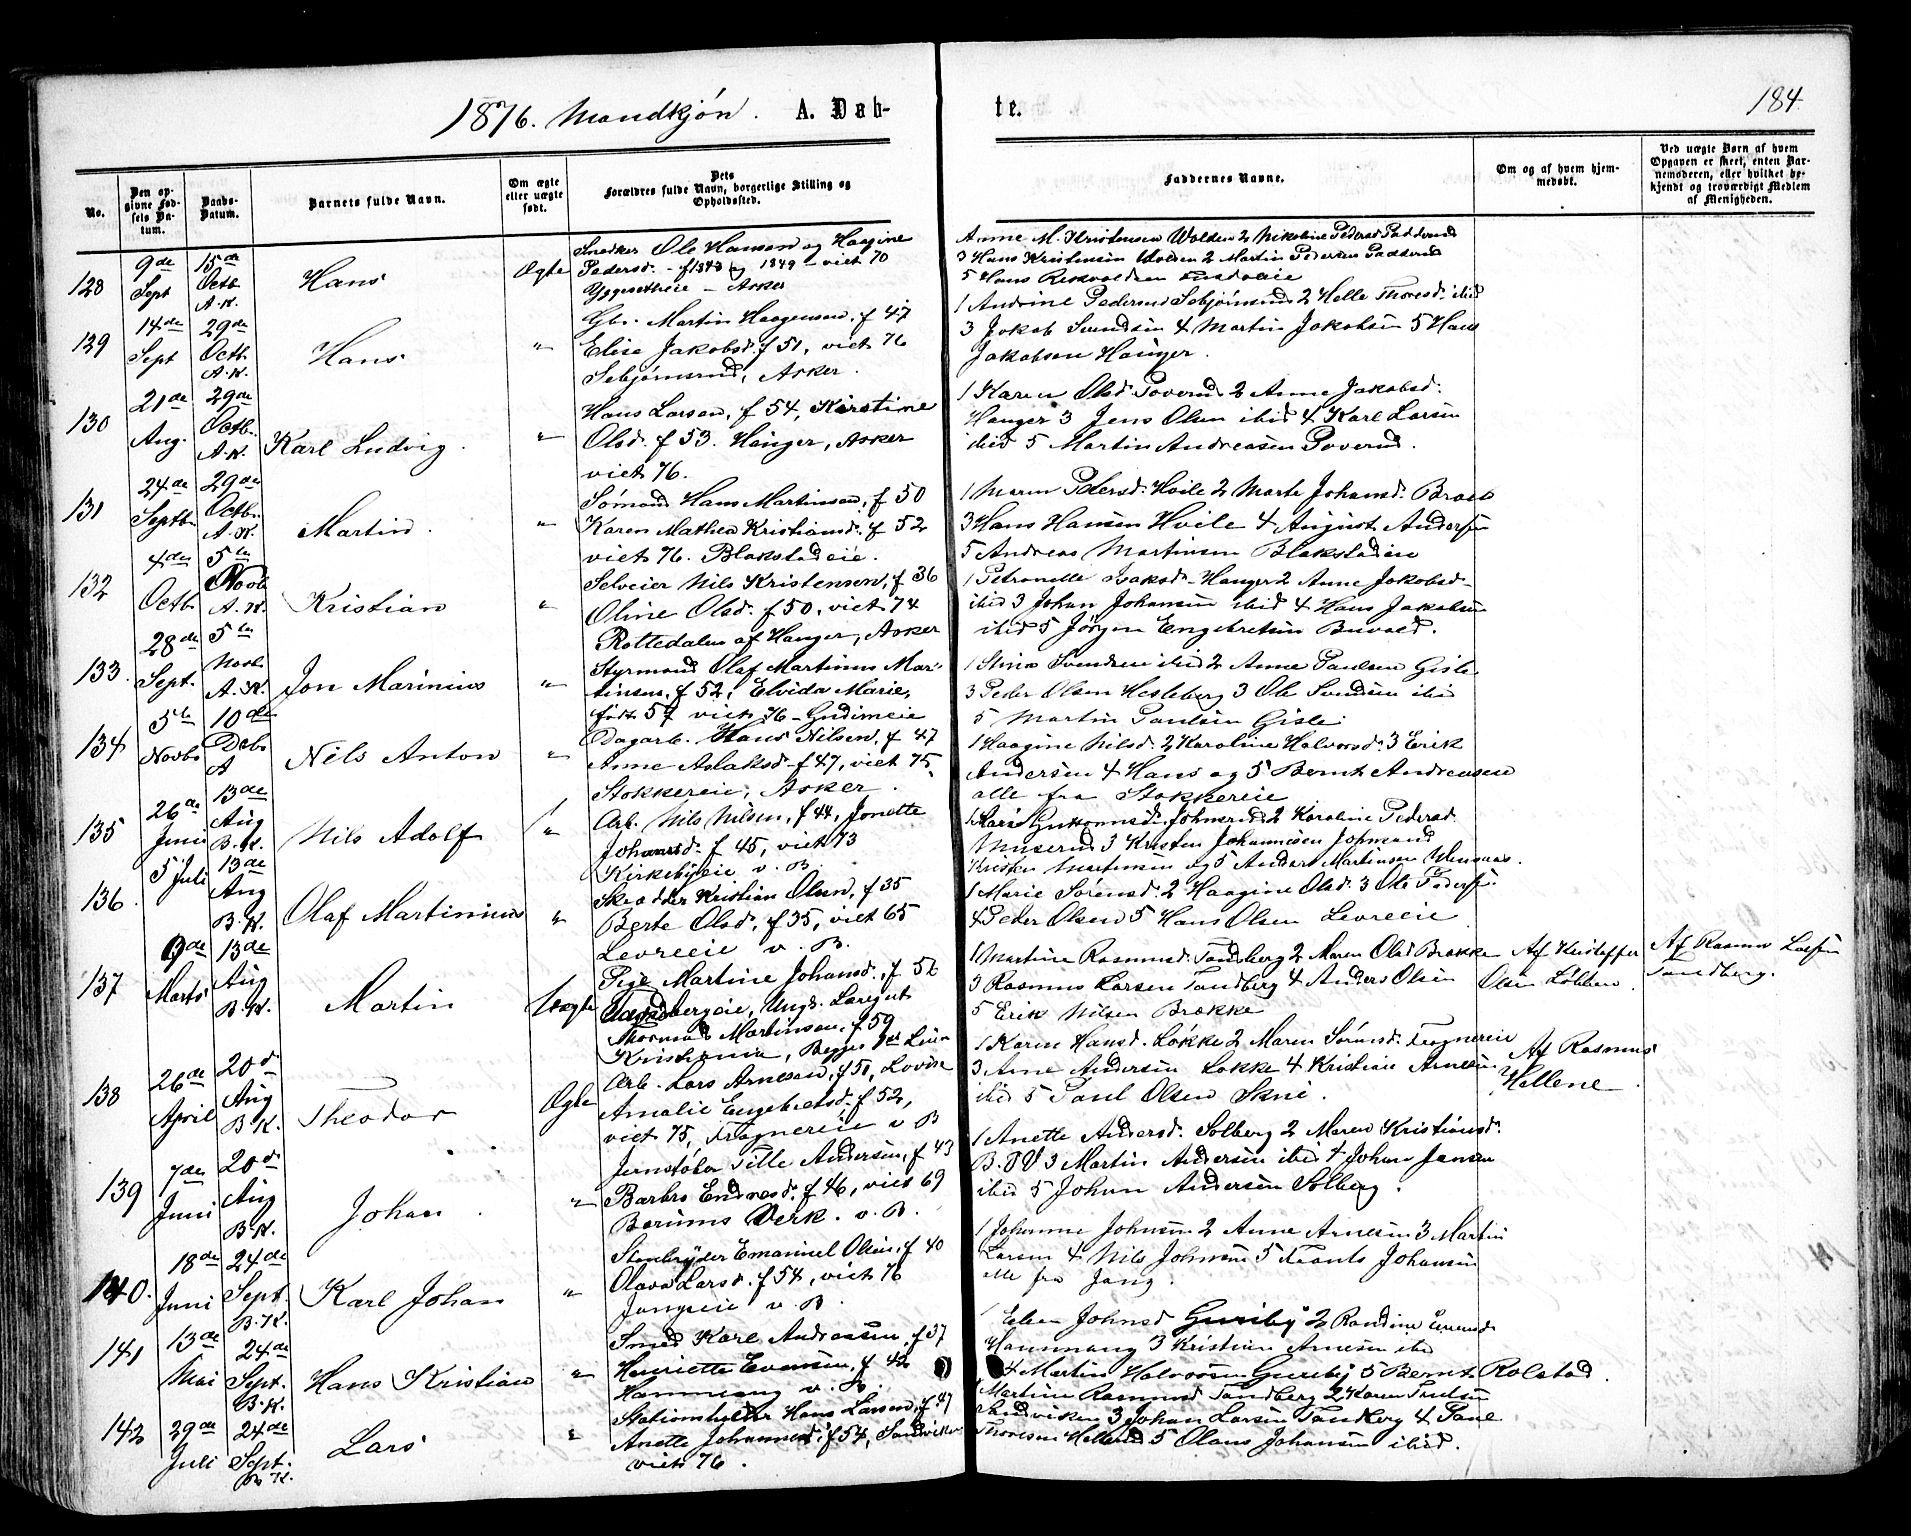 1876. Mandkjön. A. Døb-
te. 184.
No.
Den op-
givne Fød-
sels Da-
tum.
Daabs-
Datum.
Barnets fulde Navn.
Om ægte
eller uægte
født.
Dets
Forældres fulde Navn, borgerlige Stilling og
Opholdssted.
Faddernes Navne.
Om og af hvem hjem-
medøbt.
Ved uægte Børn af hvem
Opgaven er skeet, enten Bar-
nemoderen, eller hvilket be-
kjendt og troværdigt Medlem
af Menigheden.
128
9de
Sept
15de
Octb
A.K.
Hans
Ægte
Snedker Ole Hansen og Haagine
Pedersd. - f 1843 og 1849 - viet 70
Yggesetheie - Asker
Anne M. Kristensen Wolden 2 Nikoline Pedersd Padderud
3 Hans Kristensen Wolden 2 Martin Pedersen Padderud
5 Hans
129
14de
Sept
29de
Octb.
A.K.
Hans
"
Gbr. Martin Haagensen, f 47
Elise Jakobsd. f 51, viet 76
Sebjørnsrud, Asker.
1 Andrine Pedersen Sebjørnsrud 2 Helle Thoresd. ibid
3 Jakob Svendsen 4 Martin Jakobsen 5 Hans
Jakobsen Hanger.
130
21de
Aug.
29de
Octb.
A.K.
Karl Ludvig.
"
Hans Larsen, f 54, Kirstine
Olsd. f 53. Hanger, Asker
viet 76.
1 Karen Olsd. Poverud 2 Anne Jakobsd.
Hanger 3 Jens Olsen ibid 4 Karl Larsen
ibid 5 Martin Andreassen Poverud.
131
24de
Septb.
29de
Octb.
A.K.
Martin.
"
Sømand Hans Martinsen, f 50
Karen Mathea Kristiansd. f 52
viet 76. Blakstadeie.
1 Maren Pedersd. Hvile 2 Marte Johansd.
3 Hans Hansen Hvile 4 August Andersen
5 Andreas Martinsen Blakstadeie
132
4de
Octb.
5te
Novb
A.K.
Kristian
"
Selveier Nils Kristensen, f 36
Oline Olsd. f 50, viet 74
Rottedalen af Hanger, Asker
1 Petronelle Isaksd. Hanger 2 Anne Jakobsd.
ibid 3 Johan Johansen ibid 4 Hans Jakobsen
ibid 5 Jörgen Engebretsen Buvold.
133.
28de
Sept.
5te
Novb.
A.K.
Jon Marinius
"
Styrmand Olaf Martinius Mar-
tinsen, f 52, Elvida Marie,
født 57 viet 76 - Gudimeie
1 Stina Svendsen ibid 2 Anne Paulsen Gisle
3 Peder Olsen Hesleberg 3 Ole Svendsen ibid
5 Martin Paulsen Gisle.
134
5te
Novbr
10de
Debr
A
Nils Anton
"
Dagarb. Hans Nilsen, f 47
Anne Aslaksd. f 47, viet 75.
Stokkereie, Asker.
1 Haagine Nilsd. 2 Karoline Halvorsd. 3 Erik
Andersen 4 Hans og 5 Bernt Andreassen
alle fra Stokkereie
135
26de
Juni
13de
Aug
B.K.
Nils Adolf
"
Arb. Nils Nilsen, f 44, Jonette
Johansd. f 45, viet 73
Kirkebyeie v. B.
2 Karoline Pedersd.
3 Kristen Johannesen
Kristen Martinsen og 5 Anders Martinsen
136
5 Juli
13de
Aug
B.K.
Olaf Martinius
"
Skrædder Kristian Olsen, f 35
Berte Olsd. f 35, viet 65
Levreeie v. B.
1 Marie Sørensd. 2 Haagine Olsd. 3 Ole Pedersen
4 Peder Olsen 5 Hans Olsen Levreeie
137
9de
Marts
13de
Aug
B.K.
Martin
Uægte
Pige Martine Johansd., f 56
Tandbergeie, Ungk.
Thormod Martinsen, f 59
Kristiania, Begges 1ste
1 Martine Rasmusd. Tandberg 2 Maren Olsd Brække
3 Rasmus Larsen Tandberg 4 Anders Olsen
5 Erik Nilsen Brække
Af Kristoffer
Olsen Løkken.
Af Rasmus Larsen
Tandberg.
138
26de
April
20d
Aug
B.K.
Theodor
Ægte
Arb. Lars Arnesen, f 51, Lovise
Amalie Engebretsd. f 52,
viet 75, Frognereie v B
1 Karen Hansd. Løkke 2 Maren Sørensd. Frognereie
3 Arne Andersen Løkke 4 Kristian Arnesen
ibid 5 Paul Olsen Skui.
Af Rasmus
Hellene.
139
7de
Juni
20d
Aug
B.K.
Johan.
"
Jernstøber Tille Andersen, f 43
Barbro Endresd. f 46, viet 69
Bærums Verk. v. B.
1 Anette Andersd. Solberg 2 Maren Kristiansd.
B. V 3 Martin Andersen ibid 4 Johan Jensen
ibid 5 Johan Andersen Solberg.
140.
18de
Juni
24de
Sept.
B.K.
Karl Johan
"
Stenbryder Emanuel Olsen, f 40
Olava Larsd. f 54, viet 76
Jongseie v. B.
1 Johanne Johnsen 2 Anne Arnesen 3 Martin
Larsen 4 Nils Johnsen 5 Frants Johansen
alle fra Jong.
141
13de
Mai
24de
Sept.
B.K.
Hans Kristian
"
Smed Karl Andreassen, f 37
Henriette Evensen, f 42
Hammang v. B.
1 Ellen Johnsd Gunby 2 Randine
Hammang 3 Kristian Arnesen ibid
4 Martin Halvorsen Gunby 5 Bernt Rolstad.
142
29de
Juli
24de
Sept.
B.K.
Lars
"
Stationsholder Hans Larsen, f 47
Anette Johannesd. f 54, Sandviken
viet 76.
Martine Rasmusd Tandberg 2 Karen Paulsen
Sandviken 3 Johan Larsen Tandberg 4
Thoresen Hellerud 5 Olaus Johansen ibid.